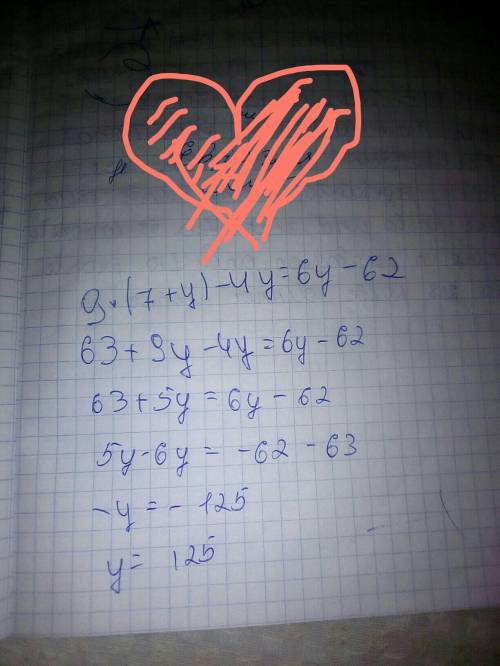 9·(7+y)-4y=6y-62
63+9y-4y=6y-62
63+5y=6y-62
5y-6y=-62-63
-y=-125
y=125